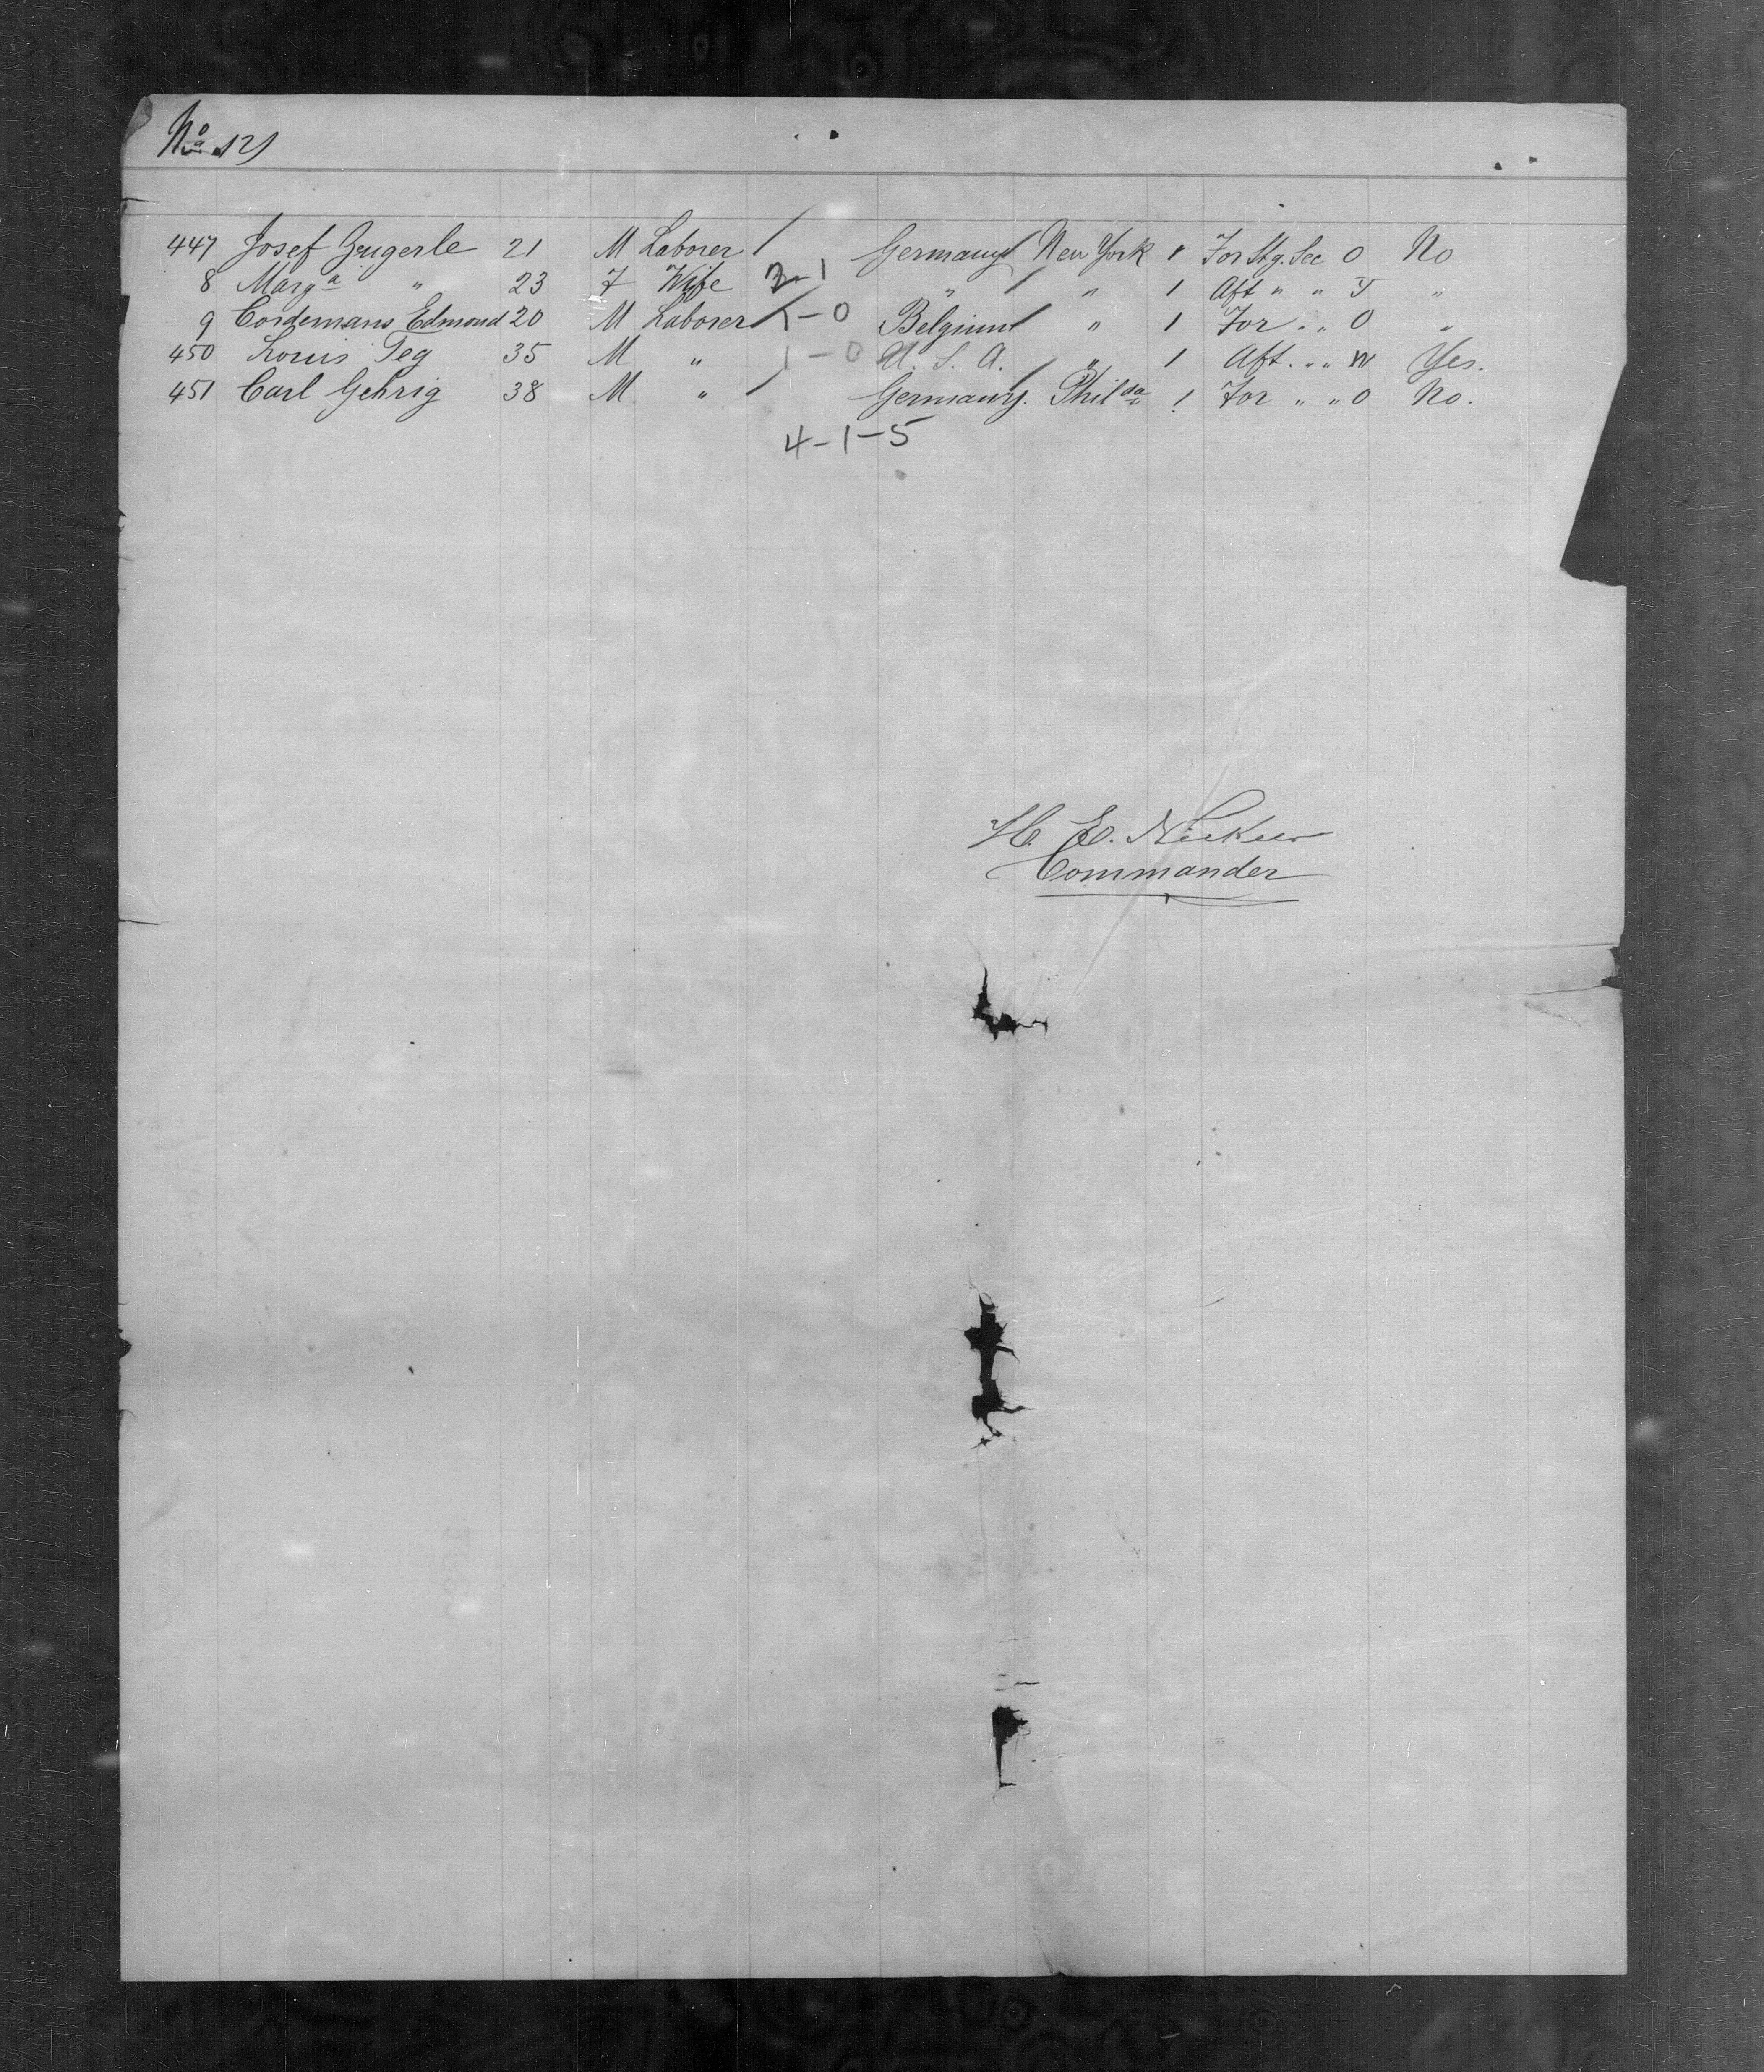 No 121
447 Josef Zengerle 21 M Laborer Germany New York 1 For Stg. Sec O No
8 Marga " 23 F Wife 2-1 " " 1 Aft " " T "
9 Cordemans Edmond 20 M Laborer 1-0 Belgium " 1 For " " O "
450 Louis Peg 35 M " 1-0 U. S. A. " 1 Aft. " " W Yes.
451 Carl Gehrig 38 M " Germany. Philda 1 For " " O No.
4-1-5
H. E. Nickels
Commander